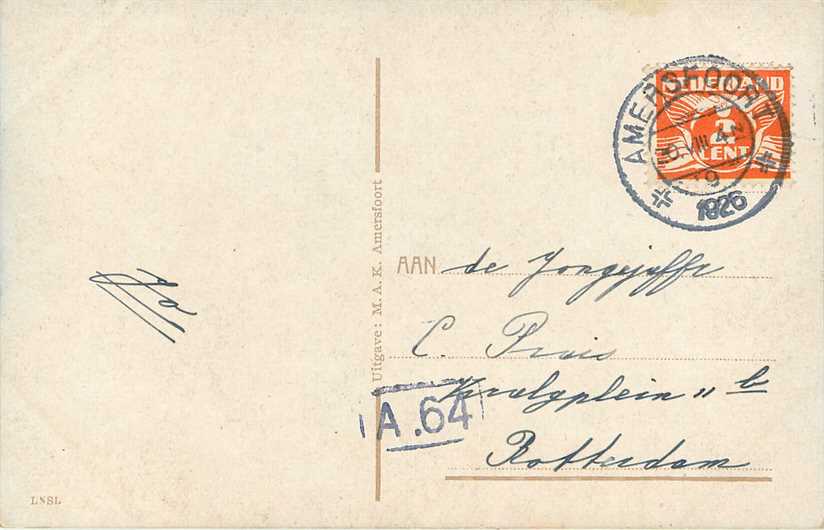 AMERSFOORT
1926
NEDERLAND
2
CENT
AAN de Jongejuffr
C. Pruis
b
Rotterdam
A.64
Uitgave: M. A. K. Amersfoort
LNSL